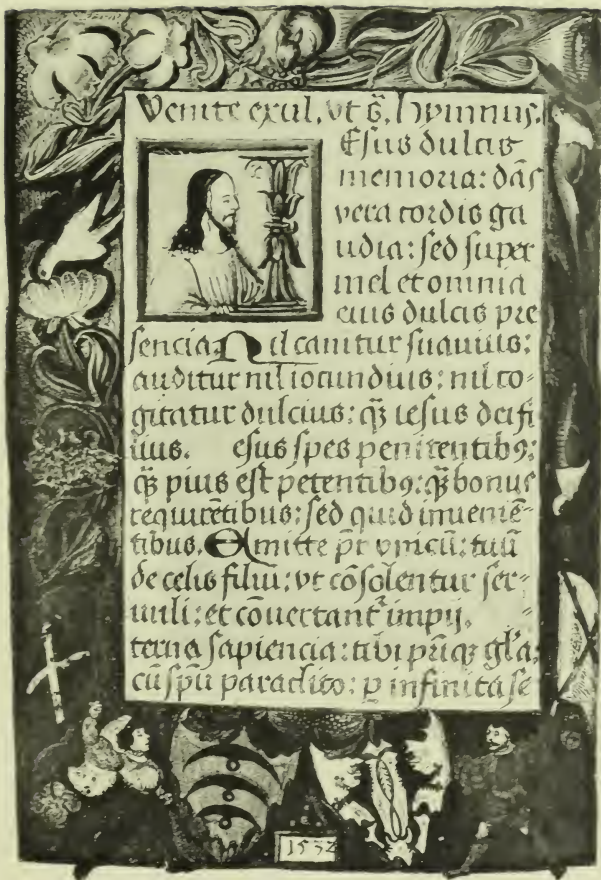 Venite exul, vt s̄, hymnus.
Esus dulcis
memoria: dās
vera cordis ga
udia: sed super
mel et omnia
eius dulcis pre
sencia Nil canitur suauius:
auditur nil iocundius: nil co=
gitatur dulcius: q̄ȝ iesus dei fi
lius. esus spes penitentibꝯ:
q̄ȝ pius est petentibꝯ: q̄ȝ bonus
requirētibus: sed quid inueniē=
tibus. Emitte pr̄ vnicū: tuū
de celis filiū: vt cōsolentur ser=
uuli: et cōuertant᷑ impij.
terna sapiencia: tibi pr̄iqꝫ gl̄a:
cū spū paraclito: p̱ infinita se
1532